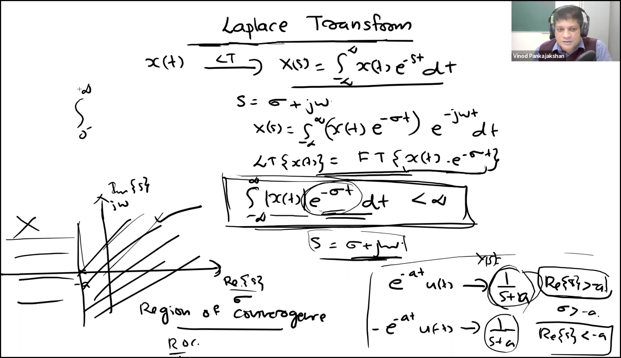 Laplace Transform
x(t) LT→ X(s) = ∫_{-∞}^{∞} x(t) e^{-st} dt
s = σ + jω
X(s) = ∫_{-∞}^{∞} (x(t) e^{-σt}) e^{-jωt} dt
LT{x(t)} = FT{x(t) . e^{-σt}}
∫_{-∞}^{∞} |x(t)| e^{-σt} dt < ∞
s = σ + jω.
+∞
∫
0^-
Im{s}
jω
X
-a
Re{s}
σ
Region of convergence
ROC.
X(s)
e^{-at} u(t) → 1/(s+a) Re{s}>-a
σ > -a.
- e^{-at} u(t) → 1/(s+a) Re{s} < -a
Vinod Pankajakshan